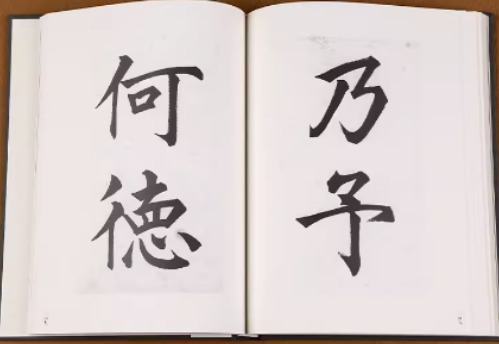 乃予
何德